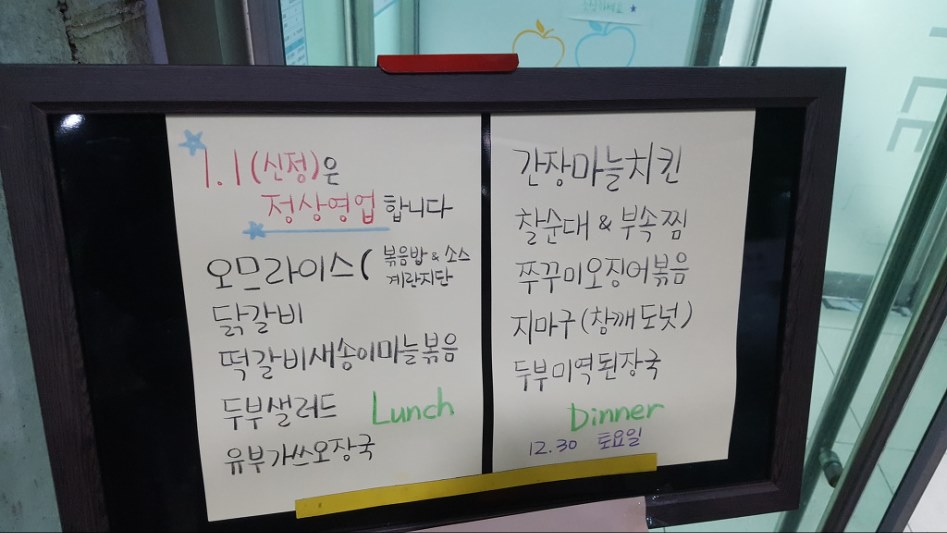 1.1(신정)은
정상영업 합니다
오므라이스( 볶음밥 & 소스
계란지단
닭갈비
떡갈비새송이마늘볶음
두부샐러드 Lunch
유부가쓰오장국
간장마늘치킨
찰순대 & 부속찜
쭈꾸미오징어볶음
지마구(참깨도넛)
두부미역된장국
Dinner
12.30 토요일